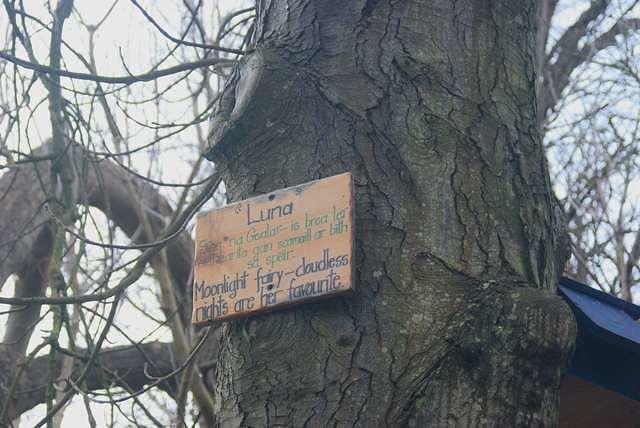 Luna
na Gealaí - is breá léi
gan scamaill ar bith
sa spéir.
Moonlight fairy - cloudless
nights are her favourite.